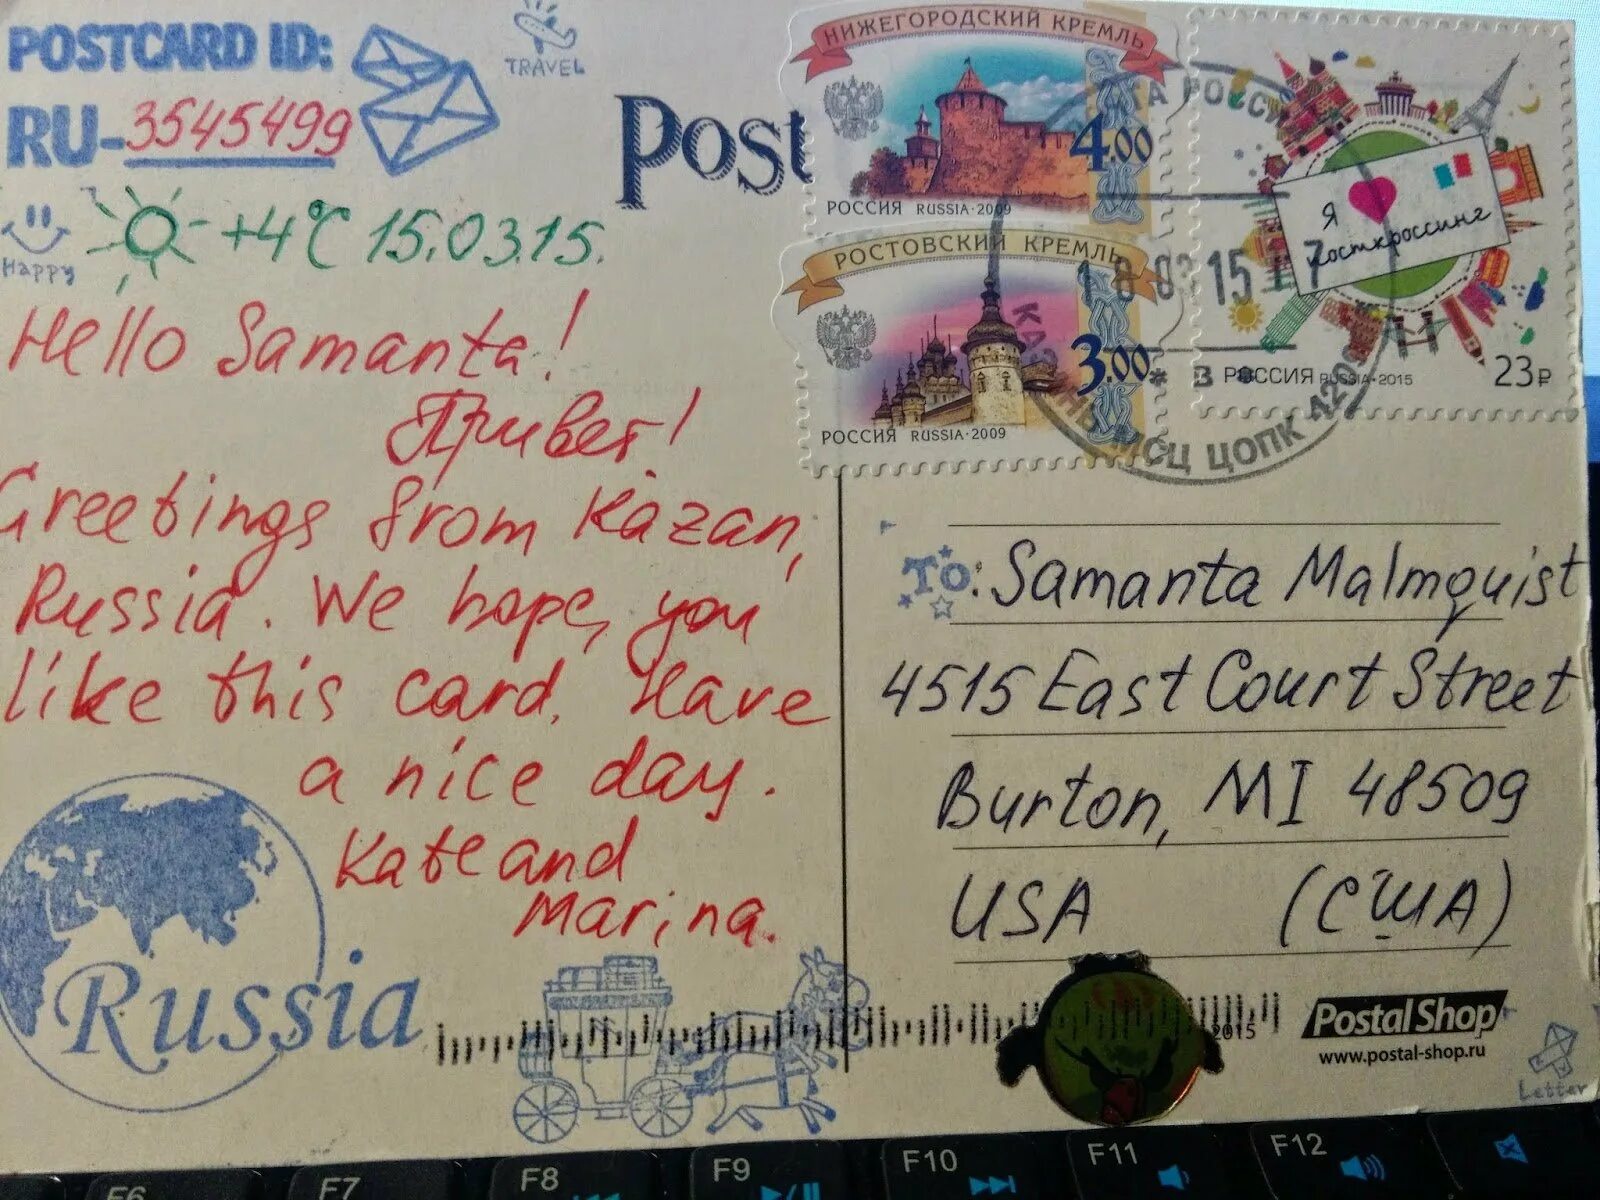 POSTCARD ID:
RU-3545499
TRAVEL
Happy
+4°C 15.03.15.
Hello Samanta!
Привет!
Greetings from Kazan,
Russia. We hope, you
like this card. Have
a nice day.
Kate and
Marina.
Russia
Post
НИЖЕГОРОДСКИЙ КРЕМЛЬ
4.00
РОССИЯ RUSSIA·2009
РОСТОВСКИЙ КРЕМЛЬ
3.00
РОССИЯ RUSSIA·2009
Я
посткроссинг
РОССИЯ RUSSIA·2015
23₽
РОССИ
03 15 17
КАЗАНЬ МСЦ ЦОПК 420
To: Samanta Malmquist
4515 East Court Street
Burton, MI 48509
USA (США)
2015
Postal Shop
www.postal-shop.ru
Letter
F6
F7
F8
F9
F10
F11
F12